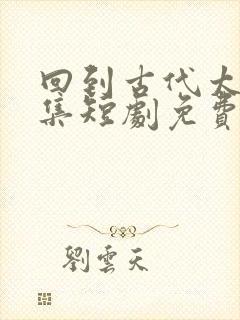 回到古代大
集短劇免費
劉雲天